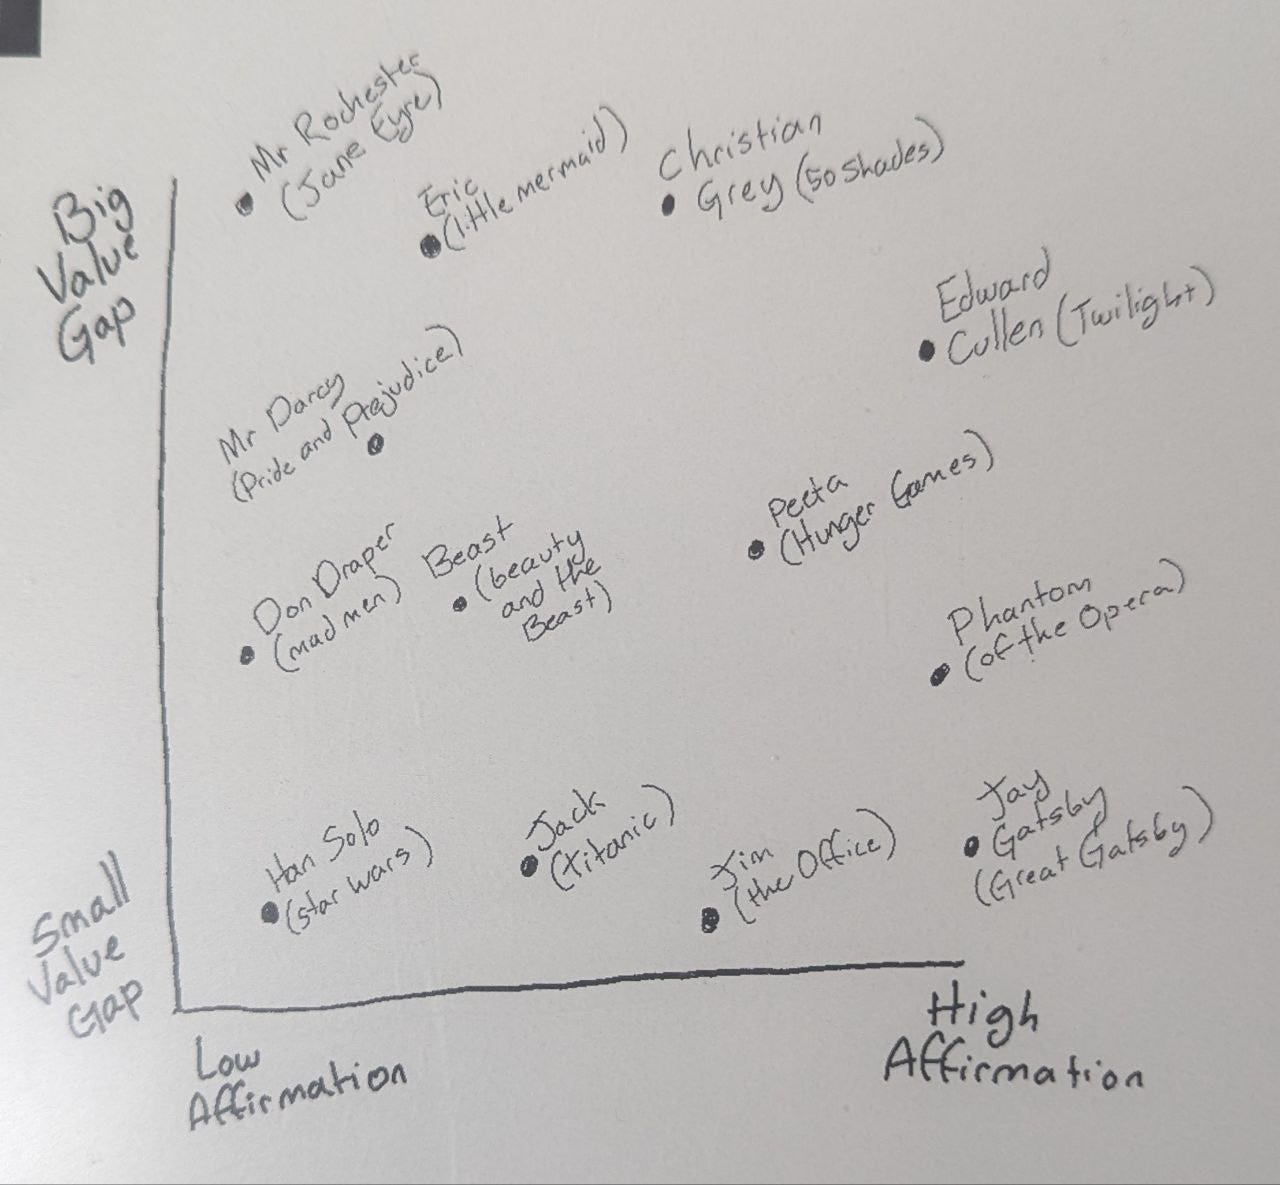 Mr Rochester
(Jane Eyre)
Eric
(little mermaid)
Christian
Grey (50 Shades)
Big
Value
Gap
Edward
Cullen (Twilight)
Mr Darcy
(Pride and Prejudice)
Peeta
(Hunger Games)
Don Draper
(mad men)
Beast
(beauty
and the
Beast)
Phantom
(of the Opera)
Han Solo
(star wars)
Jack
(Titanic)
Jim
(the Office)
Jay
Gatsby
(Great Gatsby)
Small
Value
Gap
Low
Affirmation
High
Affirmation